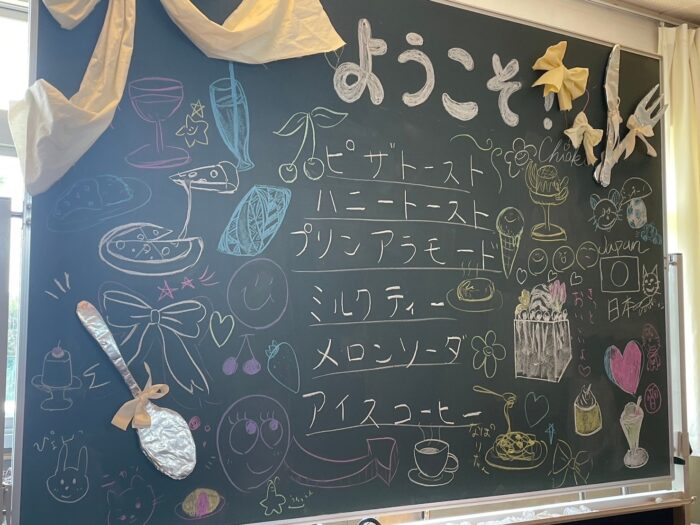 ようこそ!
ピザトースト
ハニートースト
プリンアラモード
ミルクティー
メロンソーダ
アイスコーヒー
Japan
日本